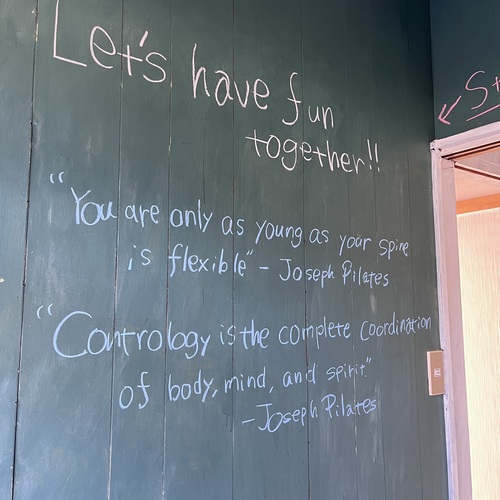 Let's have fun
together!!
"You are only as young as your spine
is flexible" - Joseph Pilates
"Contrology is the complete coordination
of body, mind, and spirit"
- Joseph Pilates